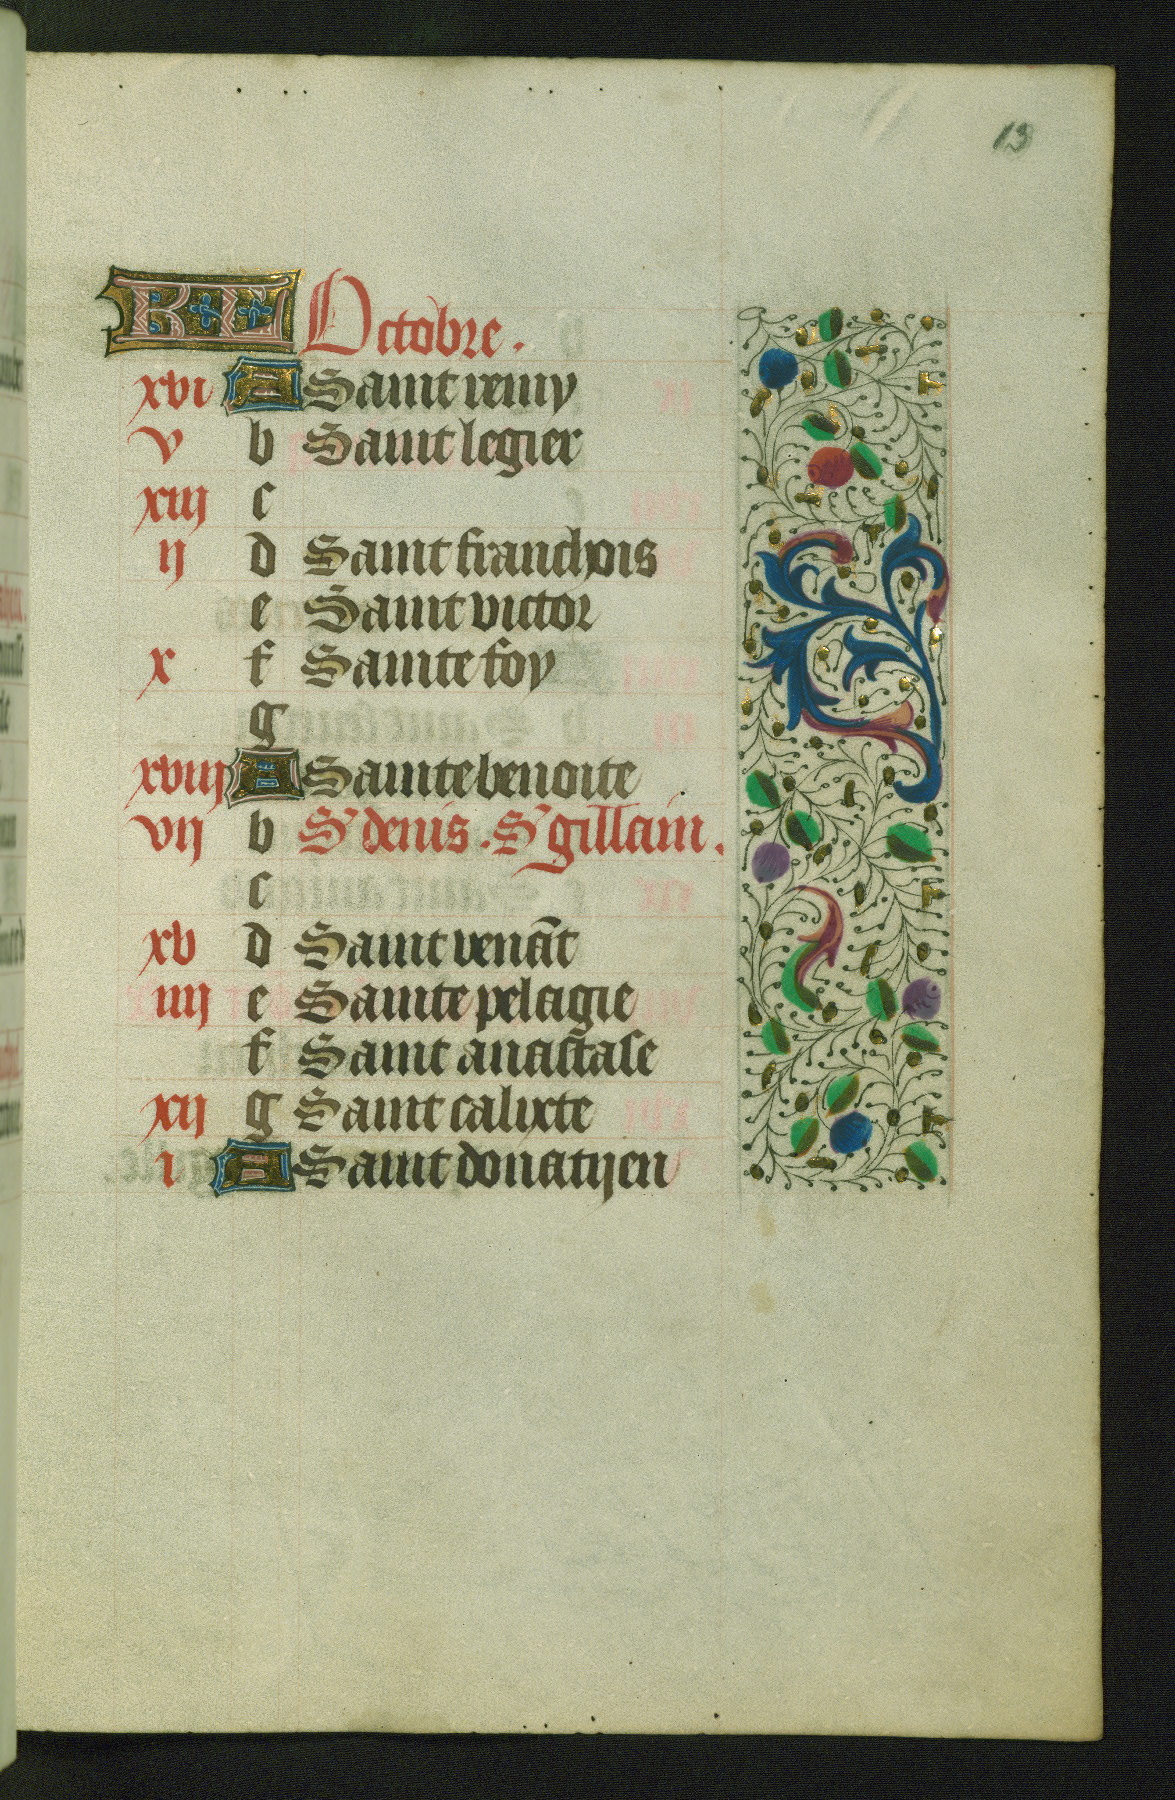 13
KL Octobre.
xvi A Saint remy
v b Saint legier
xiii c
ij d Saint franchois
e Saint victor
x f Sainte foy
g
xviij A Sainte benoite
vij b S' denis. S' gillain.
c
xv d Saint venãt
iiij e Sainte pelagie
f Saint anastase
xij g Saint calixte
i A Saint donatijen